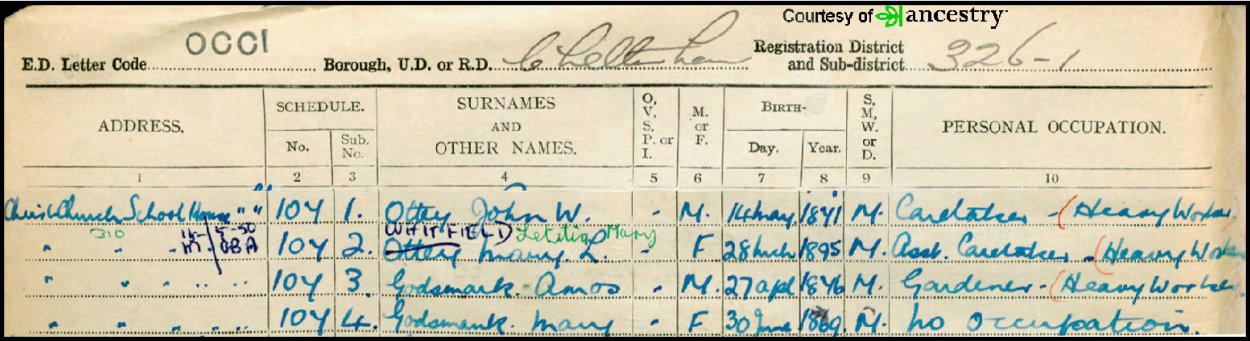 Courtesy of ancestry
OCCI
E.D. Letter Code Borough, U.D. or R.D. Cheltenham Registration District and Sub-district 326-1
ADDRESS. SCHEDULE. SURNAMES AND OTHER NAMES. O, V, S, P. or I. M. or F. BIRTH- S, M, W. or D. PERSONAL OCCUPATION.
No. Sub. No. Day. Year.
1 2 3 4 5 6 7 8 9 10
Christ Church School House " " 104 1. Ottey John W. - M. 14 May 1891 M. Caretaker - (Heavy Worker
310 WHITFIELD Letitia Mary
" " " 104 2. Ottey Mary L. - F 28 1895 M. Asst. Caretaker - (Heavy Worker
" " " " " 104 3. Godsmark. Amos - M. 27 Apl M. Gardener - (Heavy Worker
" " " " " 104 4. Godsmark. Mary - F 30 June 1869. M. No occupation.